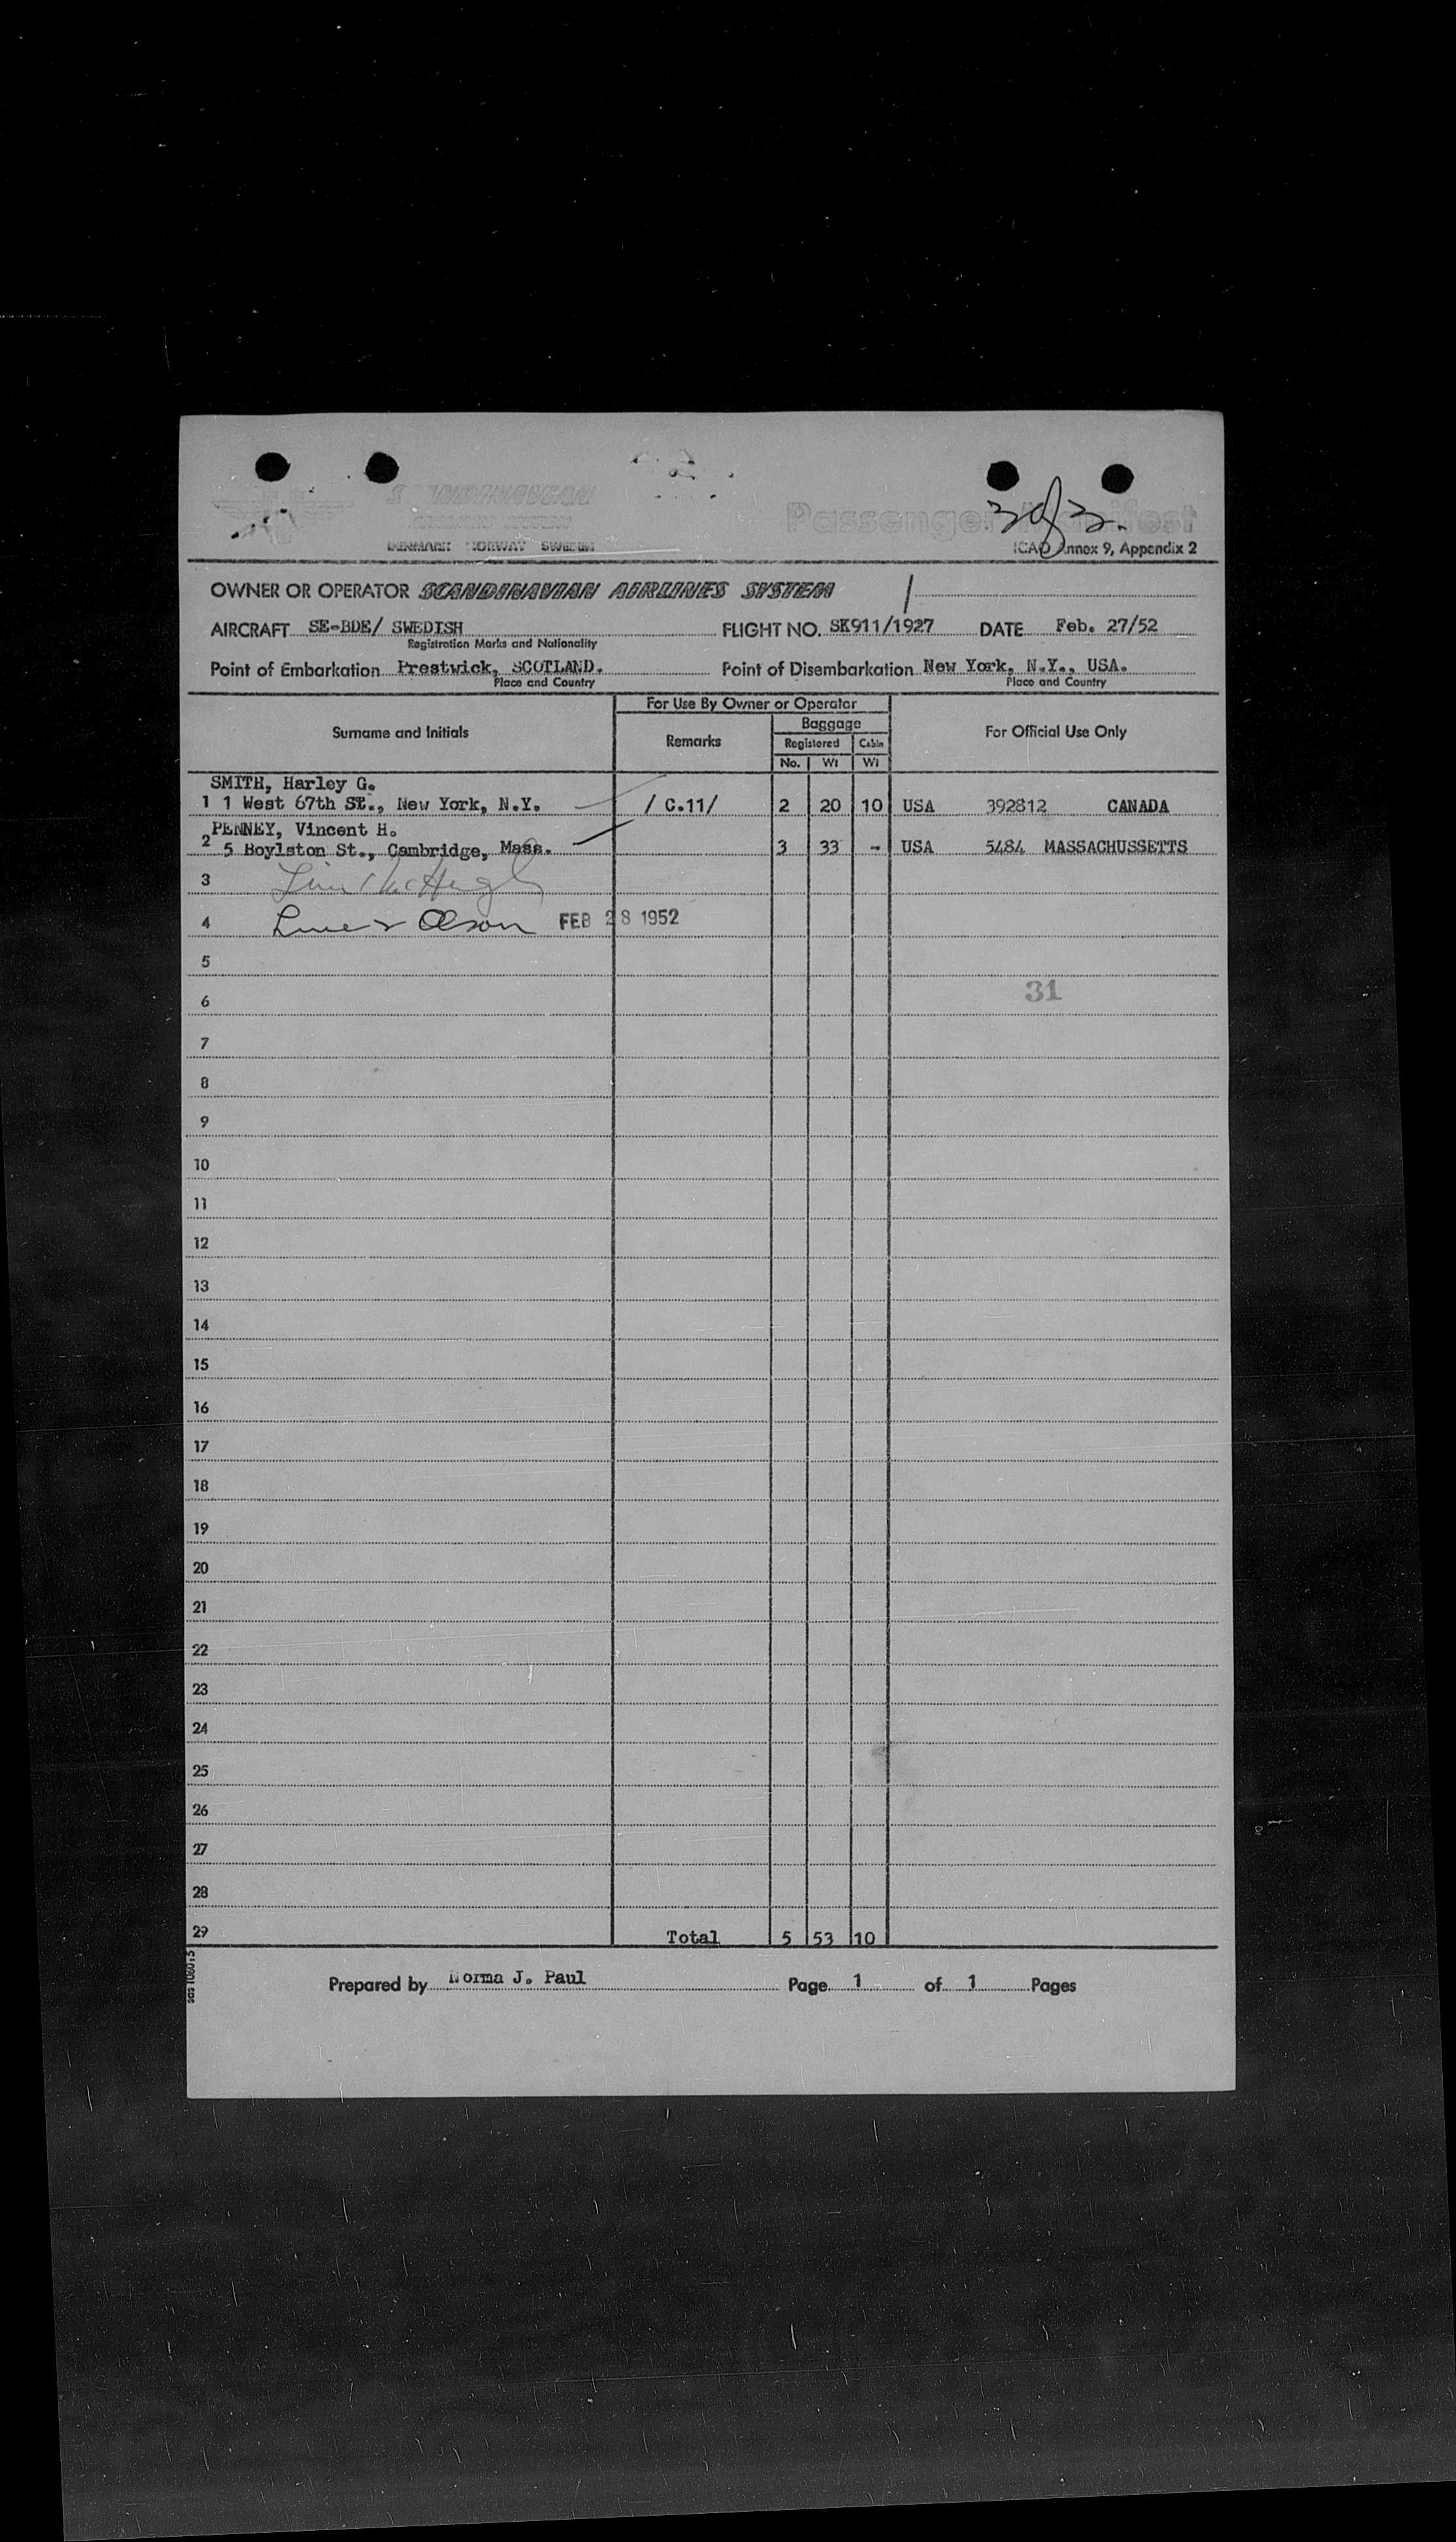 SCANDINAVIAN
AIRLINES SYSTEM
DENMARK NORWAY SWEDEN
Passenger Manifest
3 of 3.
ICAO Annex 9, Appendix 2
OWNER OR OPERATOR SCANDINAVIAN AIRLINES SYSTEM
AIRCRAFT SE-BDE/ SWEDISH FLIGHT NO. SK911/1927 DATE Feb. 27/52
Registration Marks and Nationality
Point of Embarkation Prestwick, SCOTLAND. Point of Disembarkation New York, N.Y., USA.
Place and Country Place and Country
For Use By Owner or Operator
Surname and Initials Remarks Baggage For Official Use Only
Registered Cabin
No. Wt Wt
SMITH, Harley G.
1 1 West 67th St., New York, N.Y. / C.11/ 2 20 10 USA 392812 CANADA
PENNEY, Vincent H.
2 5 Boylston St., Cambridge, Mass. 3 33 - USA 5484 MASSACHUSSETTS
3
4 Olson FEB 28 1952
5
6 31
7
8
9
10
11
12
13
14
15
16
17
18
19
20
21
22
23
24
25
26
27
28
29 Total 5 53 10
Prepared by Norma J. Paul Page 1 of 1 Pages